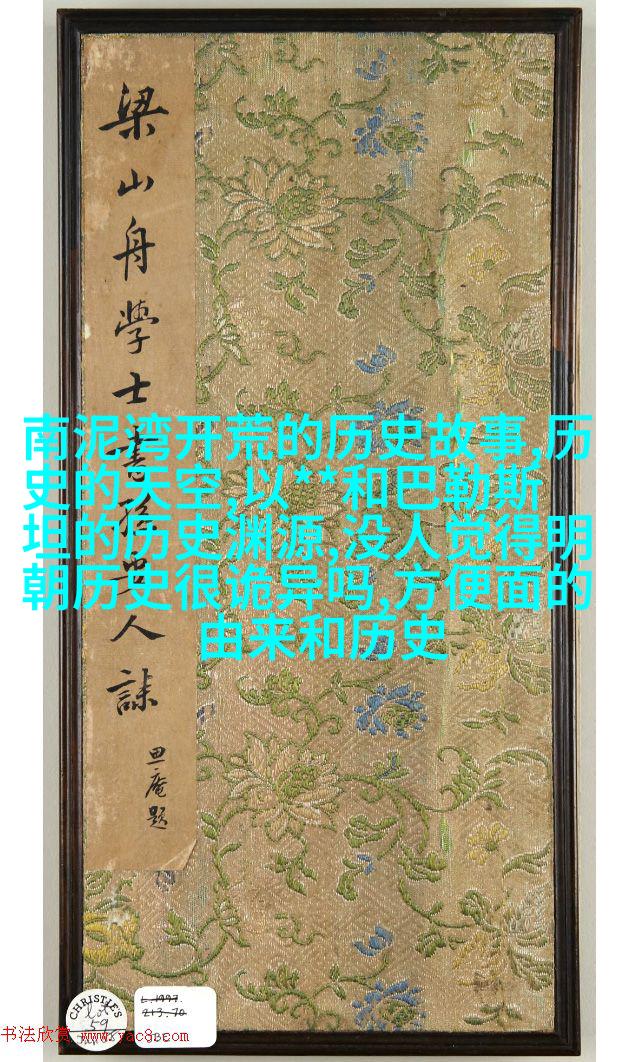 梁山舟學士書孫安人誄
思庵題
南泥湾开荒的历史故事,历
史的天空,以**和巴勒斯
坦的历史渊源,没人觉得明
朝历史很诡异吗,方便面的
由来和历史
CHRISTIE'S
Lot
59
L.1997.
213.70
书法欣赏 www.yac8.com